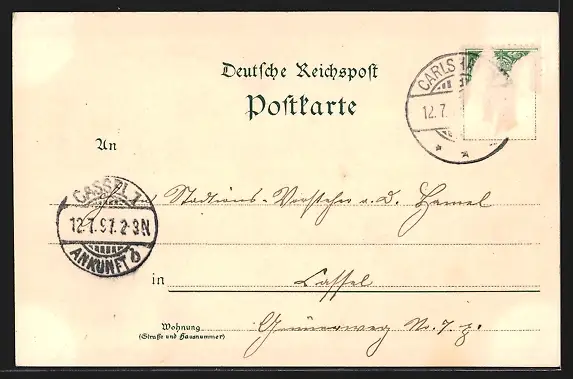 Deutsche Reichspost
Postkarte
CARLS
12.7.
An
CASSEL 1
12.7.97. 2-3N
ANKUNFT
Stations-Vorsteher a. D. Hamel
in Cassel
Wohnung
(Straße und Hausnummer)
Grünerweg No. 7